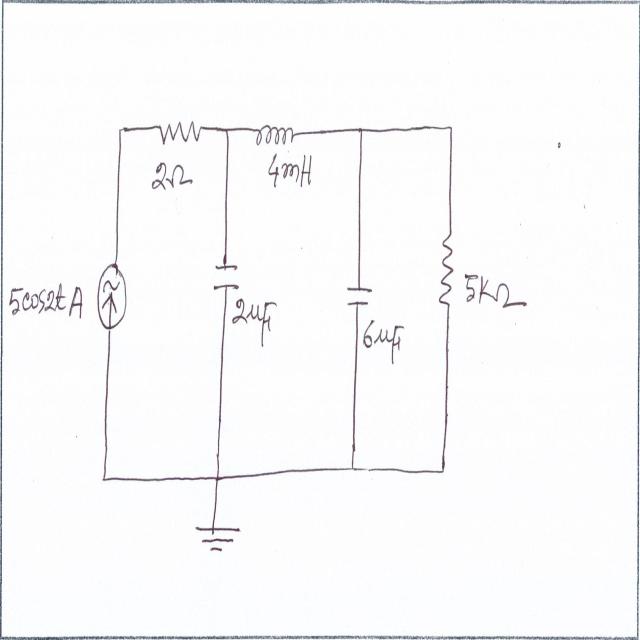 2Ω
4mH
5cos2t A
2μF
6μF
5KΩ